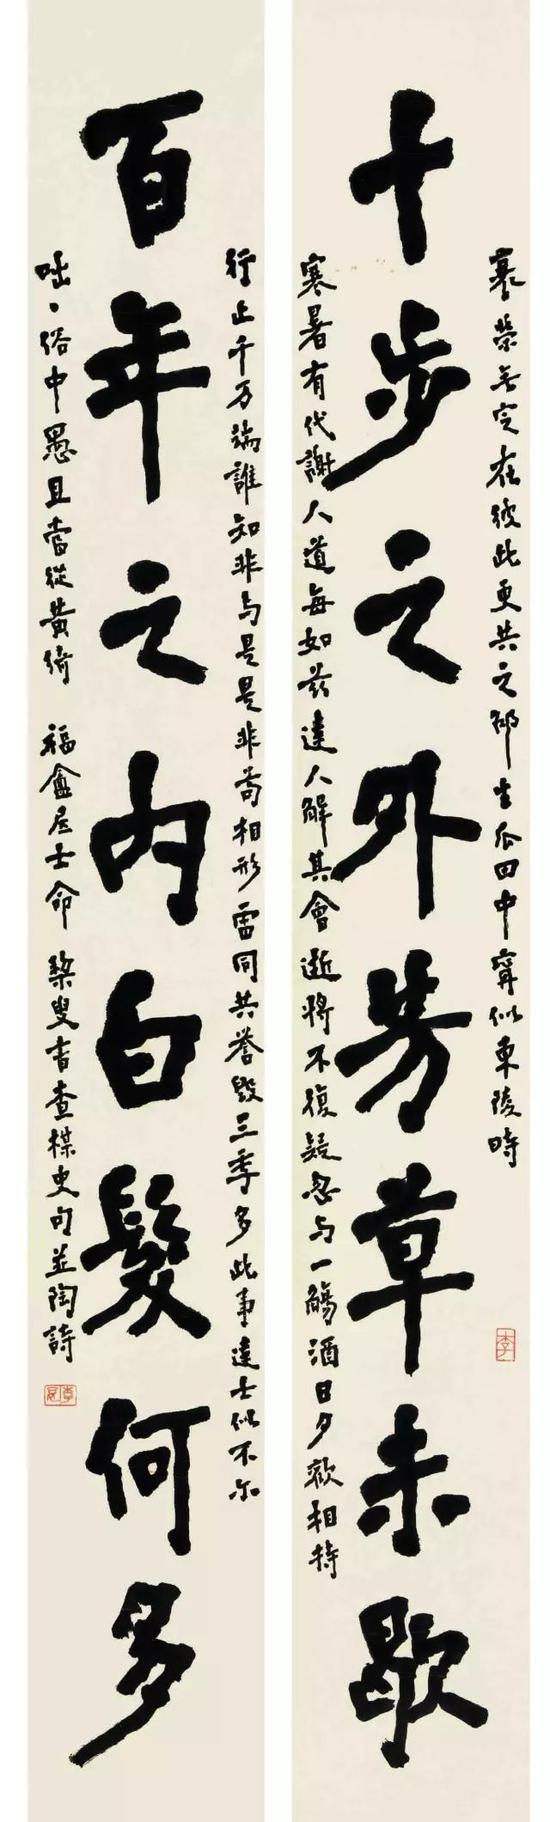 衰榮無定在彼此更共之邵生瓜田中寧似東陵時
十步之外芳草未歇
寒暑有代謝人道每如茲達人解其會逝將不復疑忽与一觴酒日夕歡相持
李
行止千万端誰知非与是是非苟相形雷同共誉毀三季多此事達士似不尔
百年之内白髮何多
咄々俗中愚且當從黃綺 福盦居士命 叟書查楳史句並陶詩